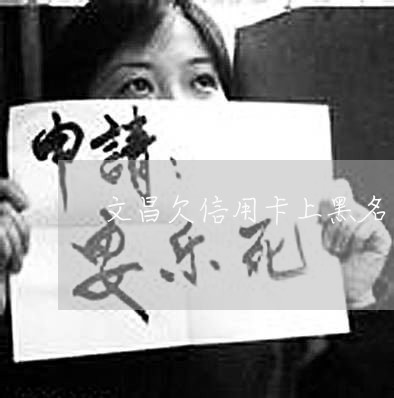 申請：
文昌欠信用卡上黑名
要乐死